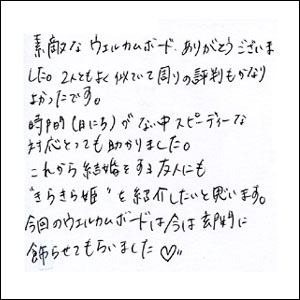 素敵なウェルカムボード、ありがとうございま
した。2人ともよく似ていて周りの評判もかなり
よかったです。
時間(日にち)がない中スピーディーな
対応とっても助かりました。
これから結婚をする友人にも
"きらきら姫"を紹介したいと思います。
今回のウェルカムボードは今は玄関に
飾らせてもらいました♡